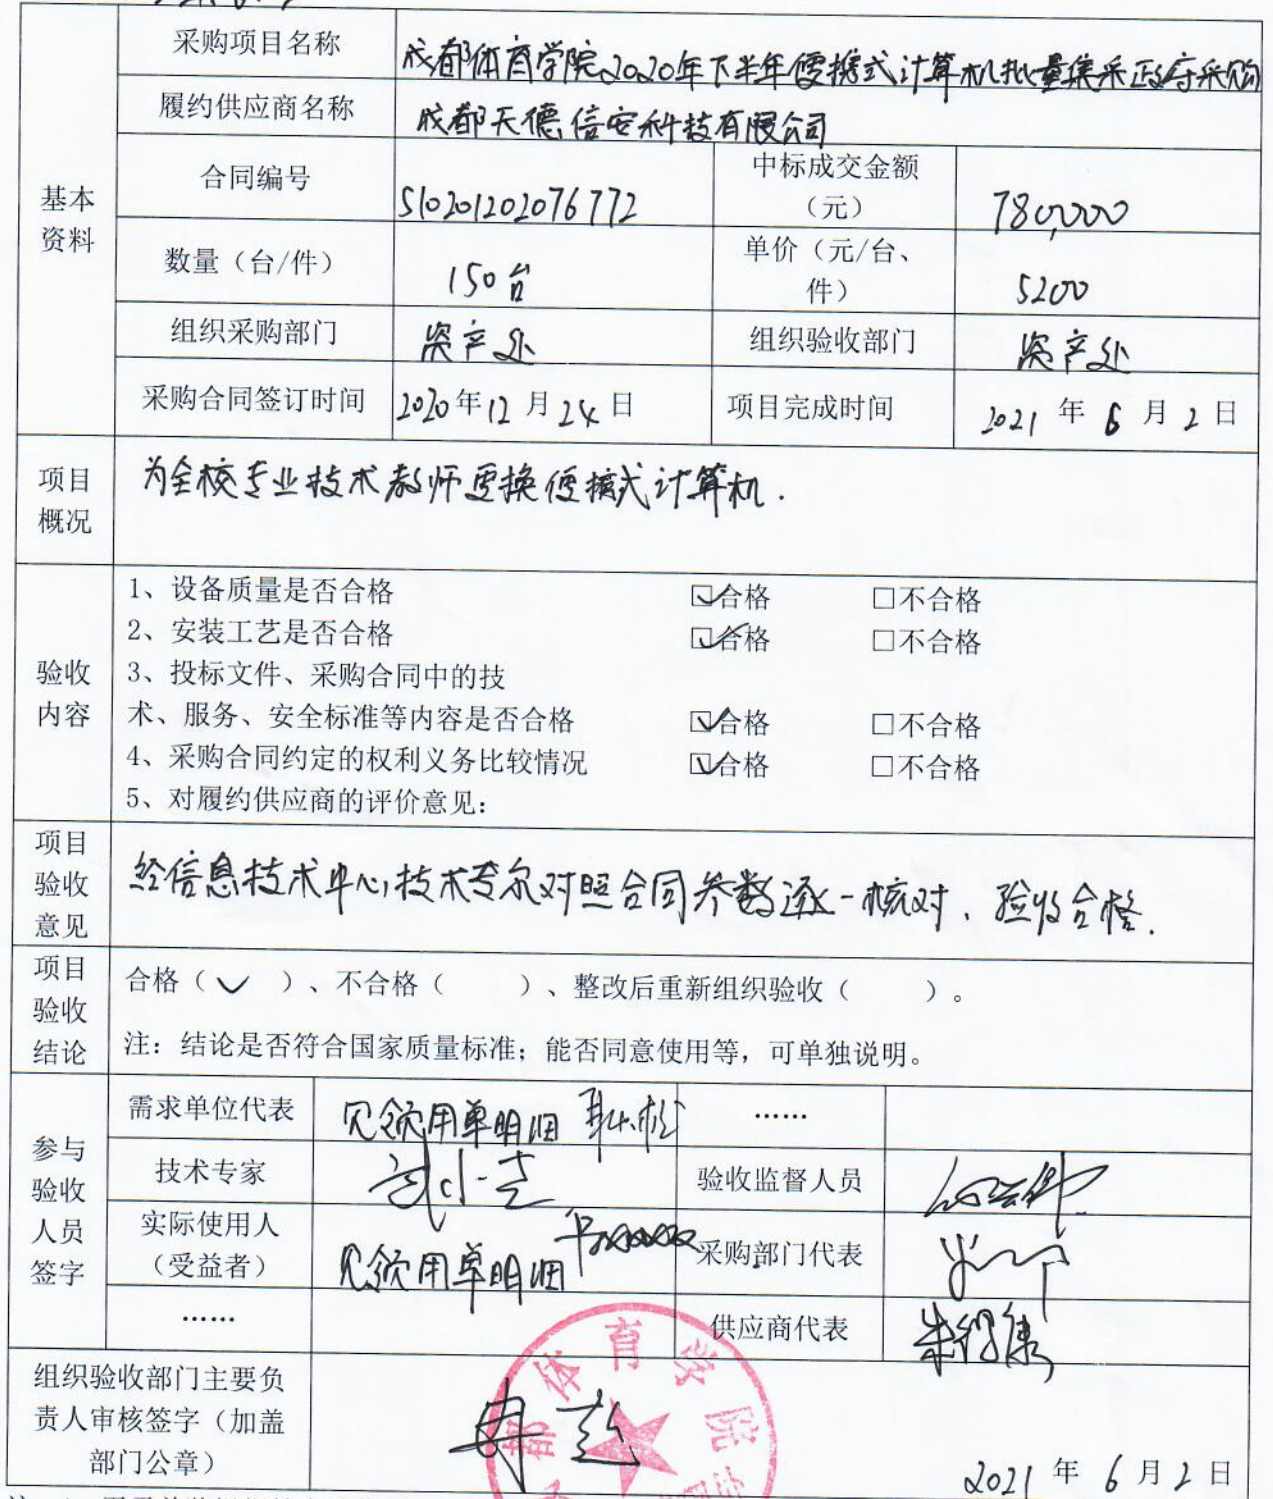 采购项目名称 成都体育学院2020年下半年便携式计算机批量集采政府采购
履约供应商名称 成都天德信安科技有限公司
基本资料
合同编号 510201202076772 中标成交金额（元） 780,000
数量（台/件） 150台 单价（元/台、件） 5200
组织采购部门 资产处 组织验收部门 资产处
采购合同签订时间 2020年12月24日 项目完成时间 2021年6月2日
项目概况 为全校专业技术教师更换便携式计算机.
验收内容
1、设备质量是否合格 ☑合格 □不合格
2、安装工艺是否合格 ☑合格 □不合格
3、投标文件、采购合同中的技
术、服务、安全标准等内容是否合格 ☑合格 □不合格
4、采购合同约定的权利义务比较情况 ☑合格 □不合格
5、对履约供应商的评价意见：
项目验收意见 经信息技术中心技术专家对照合同参数逐一核对、验收合格.
项目验收结论
合格（✓）、不合格（ ）、整改后重新组织验收（ ）。
注：结论是否符合国家质量标准；能否同意使用等，可单独说明。
参与验收人员签字
需求单位代表 见领用单明细 ……
技术专家 验收监督人员
实际使用人（受益者） 见领用单明细 采购部门代表
…… 供应商代表
组织验收部门主要负
责人审核签字（加盖
部门公章）
都体育学院
2021年6月2日